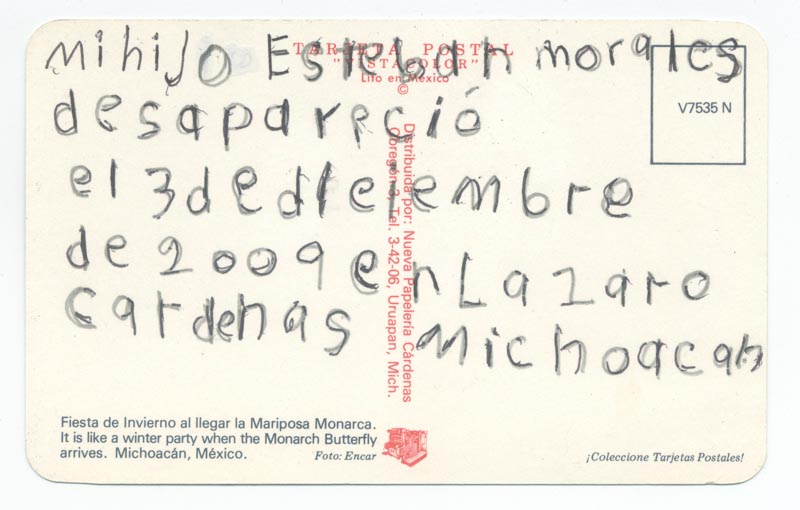 TARJETA POSTAL
"VISTACOLOR"
Lito en México
©
V7535 N
mi hijo Esteban morales
desapareció
el 3 de dIciembre
de 2009 en Lazaro
Cardenas Michoacan
Distribuida por: Nueva Papelería Cárdenas
Obregón 3, Tel. 3-42-06, Uruapan, Mich.
Fiesta de Invierno al llegar la Mariposa Monarca.
It is like a winter party when the Monarch Butterfly
arrives. Michoacán, México.
Foto: Encar
¡Coleccione Tarjetas Postales!